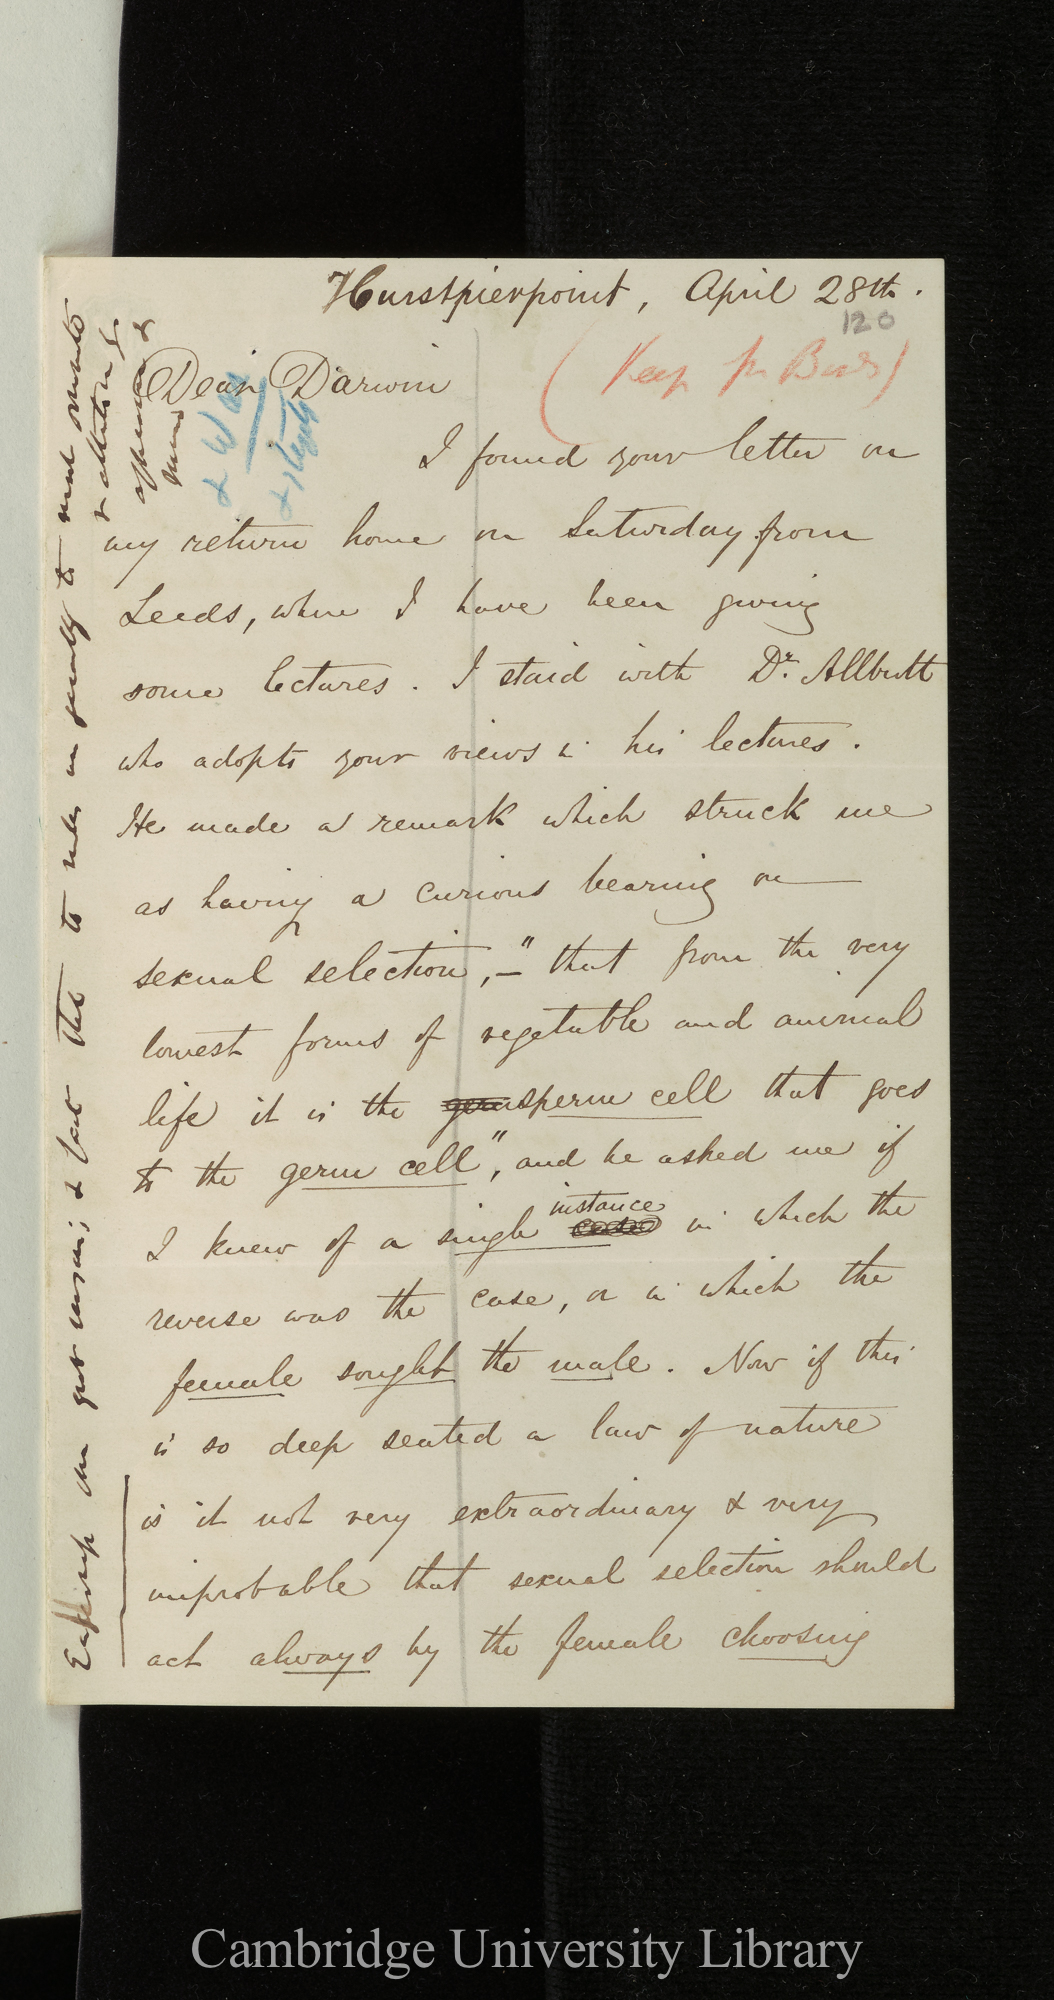 Hurstpierpoint, April 28th.
120
(Keep for Birds)
Dear Darwin
I found your letter on
my return home on Saturday from
Leeds, where I have been giving
some lectures. I staid with Dr. Allbutt
who adopts your views in his lectures.
He made a remark which struck me
as having a curious bearing on
sexual selection, – "that from the very
lowest forms of vegetable and animal
life it is the germ sperm cell that goes
to the germ cell", and he asked me if
I knew of a single instance
in which the
reverse was the case, or in which the
female sought the male. Now if this
is so deep seated a law of nature
is it not very extraordinary & very
improbable that sexual selection should
act always by the female choosing
Cambridge University Library